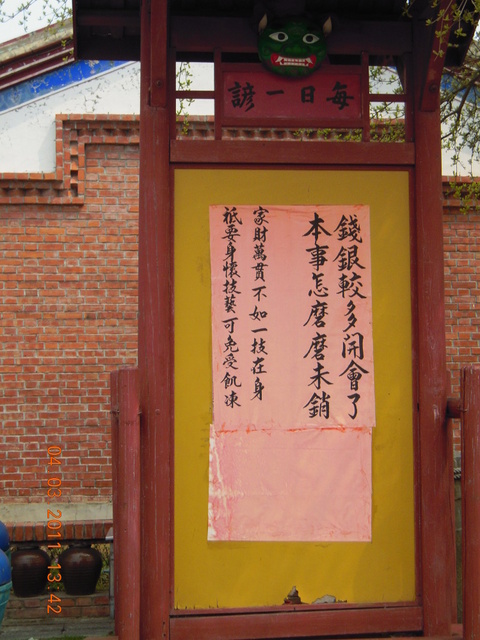 諺一日每
錢銀較多開會了
本事怎麼磨未銷
家財萬貫不如一技在身
祗要身懷技藝可免受飢凍
04.03.2011 13:42